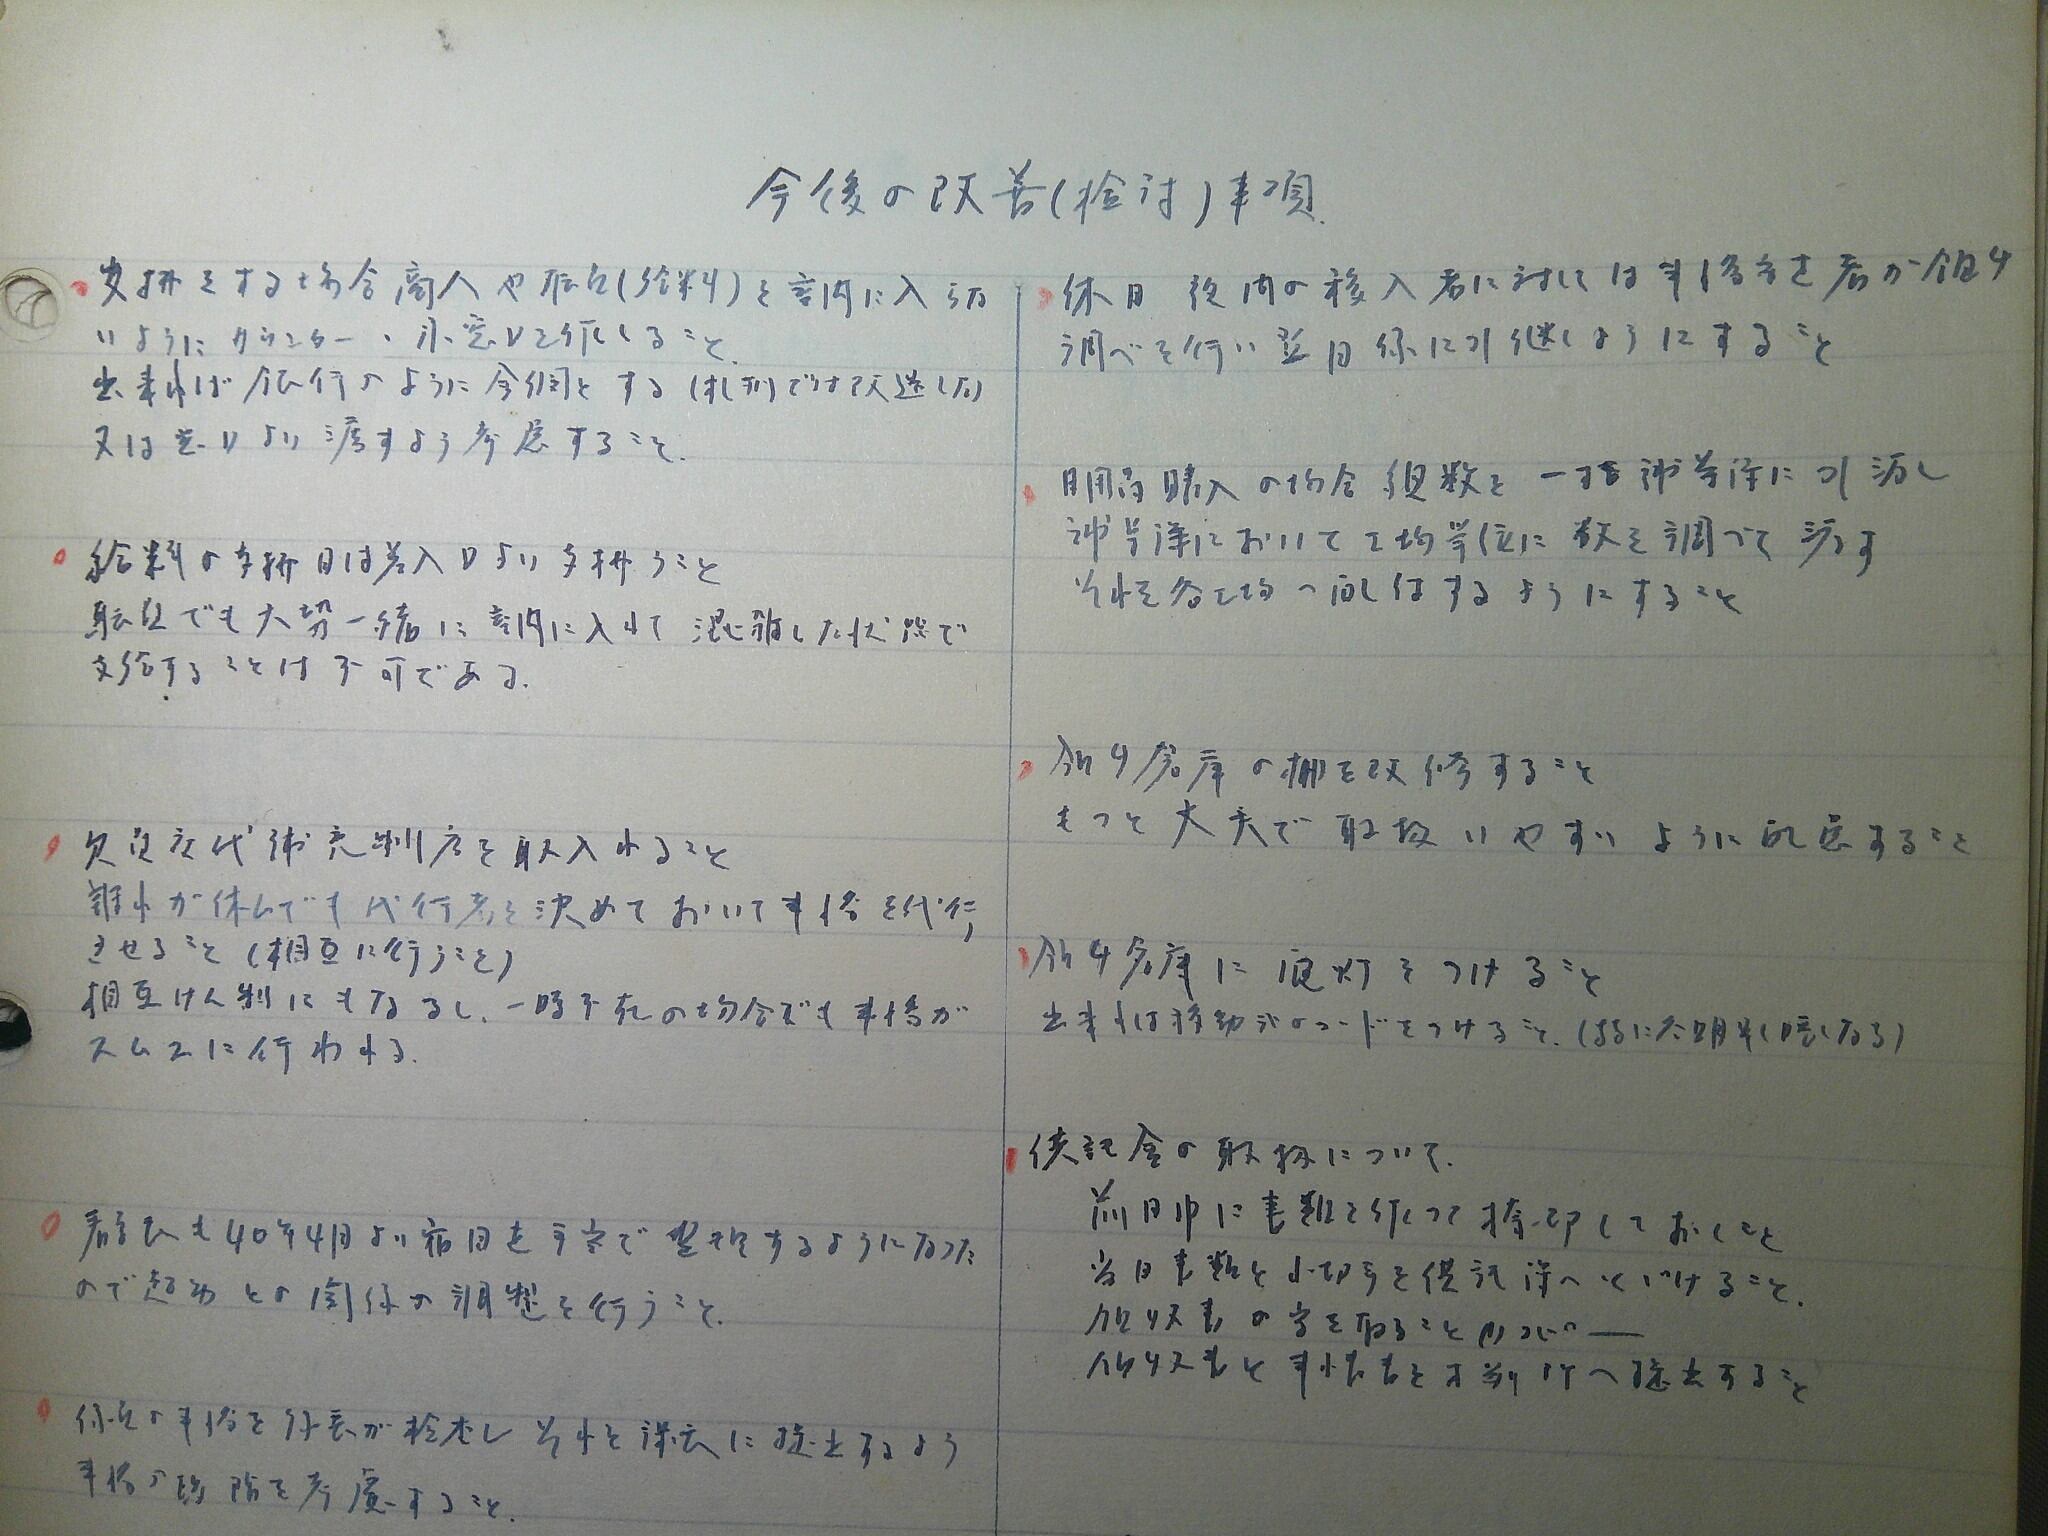 今後の改善(検討)事項
支払をする場合商人や職員(給料)を室内に入らな
いようにカウンター、小窓口を作ること、
出来れば銀行のように金網とする
又は窓口より渡すよう考慮すること、
給料の支払日は差入口より支払うこと
職員でも大勢一緒に室内に入れて混雑した状態で
支給することは不可である。
欠員交代補充制度を取入れること
誰れが休んでも代行者を決めておいて事務を代行
させること(相互に行うこと)
相互けん制にもなるし、一時不在の場合でも事務が
スムースに行われる。
も40年4月より宿日を 室で するようになった
ので との関係の調整を行うこと、
係員の事務を係長が検査しそれを課長に提出するよう
事務の 階を考慮すること、
休日 夜間の 入者に対しては事務 者が領
調べを行い翌日係に引継ぐようにすること
購入の場合 数を一括 に引渡し
において工場単位に数を調べて渡す
それを各工場へ配付するようにすること
領置倉庫の棚を改修すること
もっと丈夫で取扱いやすいように配慮すること
領置倉庫に電灯をつけること
出来れば移動式のコードをつけること、
供託金の取扱について、
前日中に書類を作って捺印しておくこと
当日書類と小切手を供託 へとどけること、
領収書の写を取ること
領収書と事情書を 判所へ提出すること